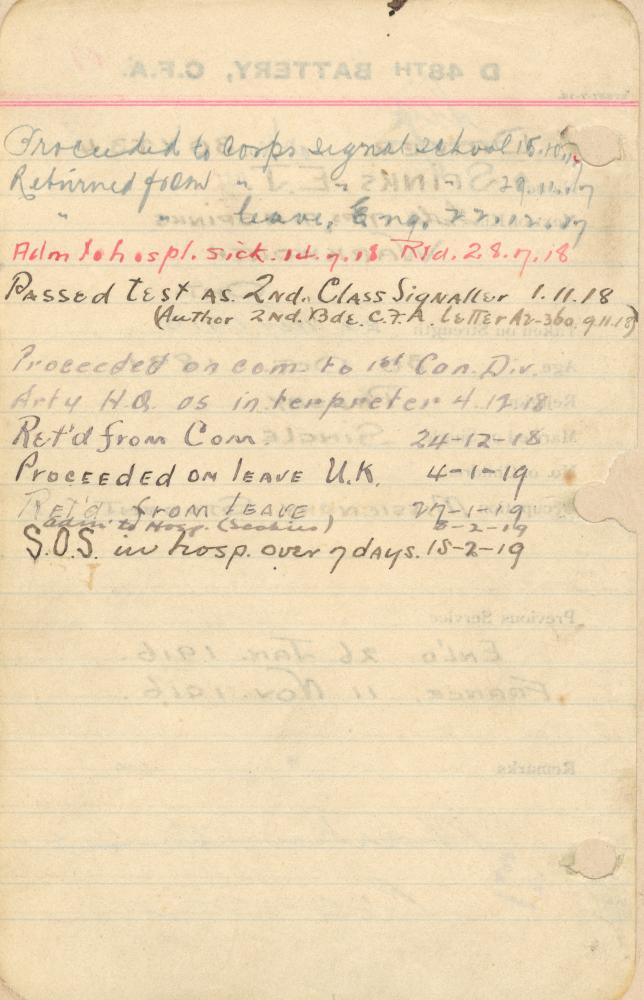 Proceeded to Corps signal school 15.10.17
Returned from " " 29.11.17
" leave, Eng. 22.12.17
Adm to hospl. sick. 14.7.18 Rtd. 28.7.18
Passed test as 2nd. Class Signaller 1.11.18
(Author 2nd. Bde. C.F.A. Letter A2-360, 9.11.18)
Proceeded on com to 1st Can. Div.
Arty H.Q. as interpreter 4.12.18
Ret'd from Com. 24-12-18
Proceeded on leave U.K. 4-1-19
Ret'd from leave 27-1-19
adm'td Hosp. (Scabies) 8-2-19
S.O.S. in hosp. over 7 days. 15-2-19
D 48TH BATTERY, C.F.A.
Previous Service
Enl'd 26 Jan. 1916.
France, 11 Nov. 1916.
Remarks